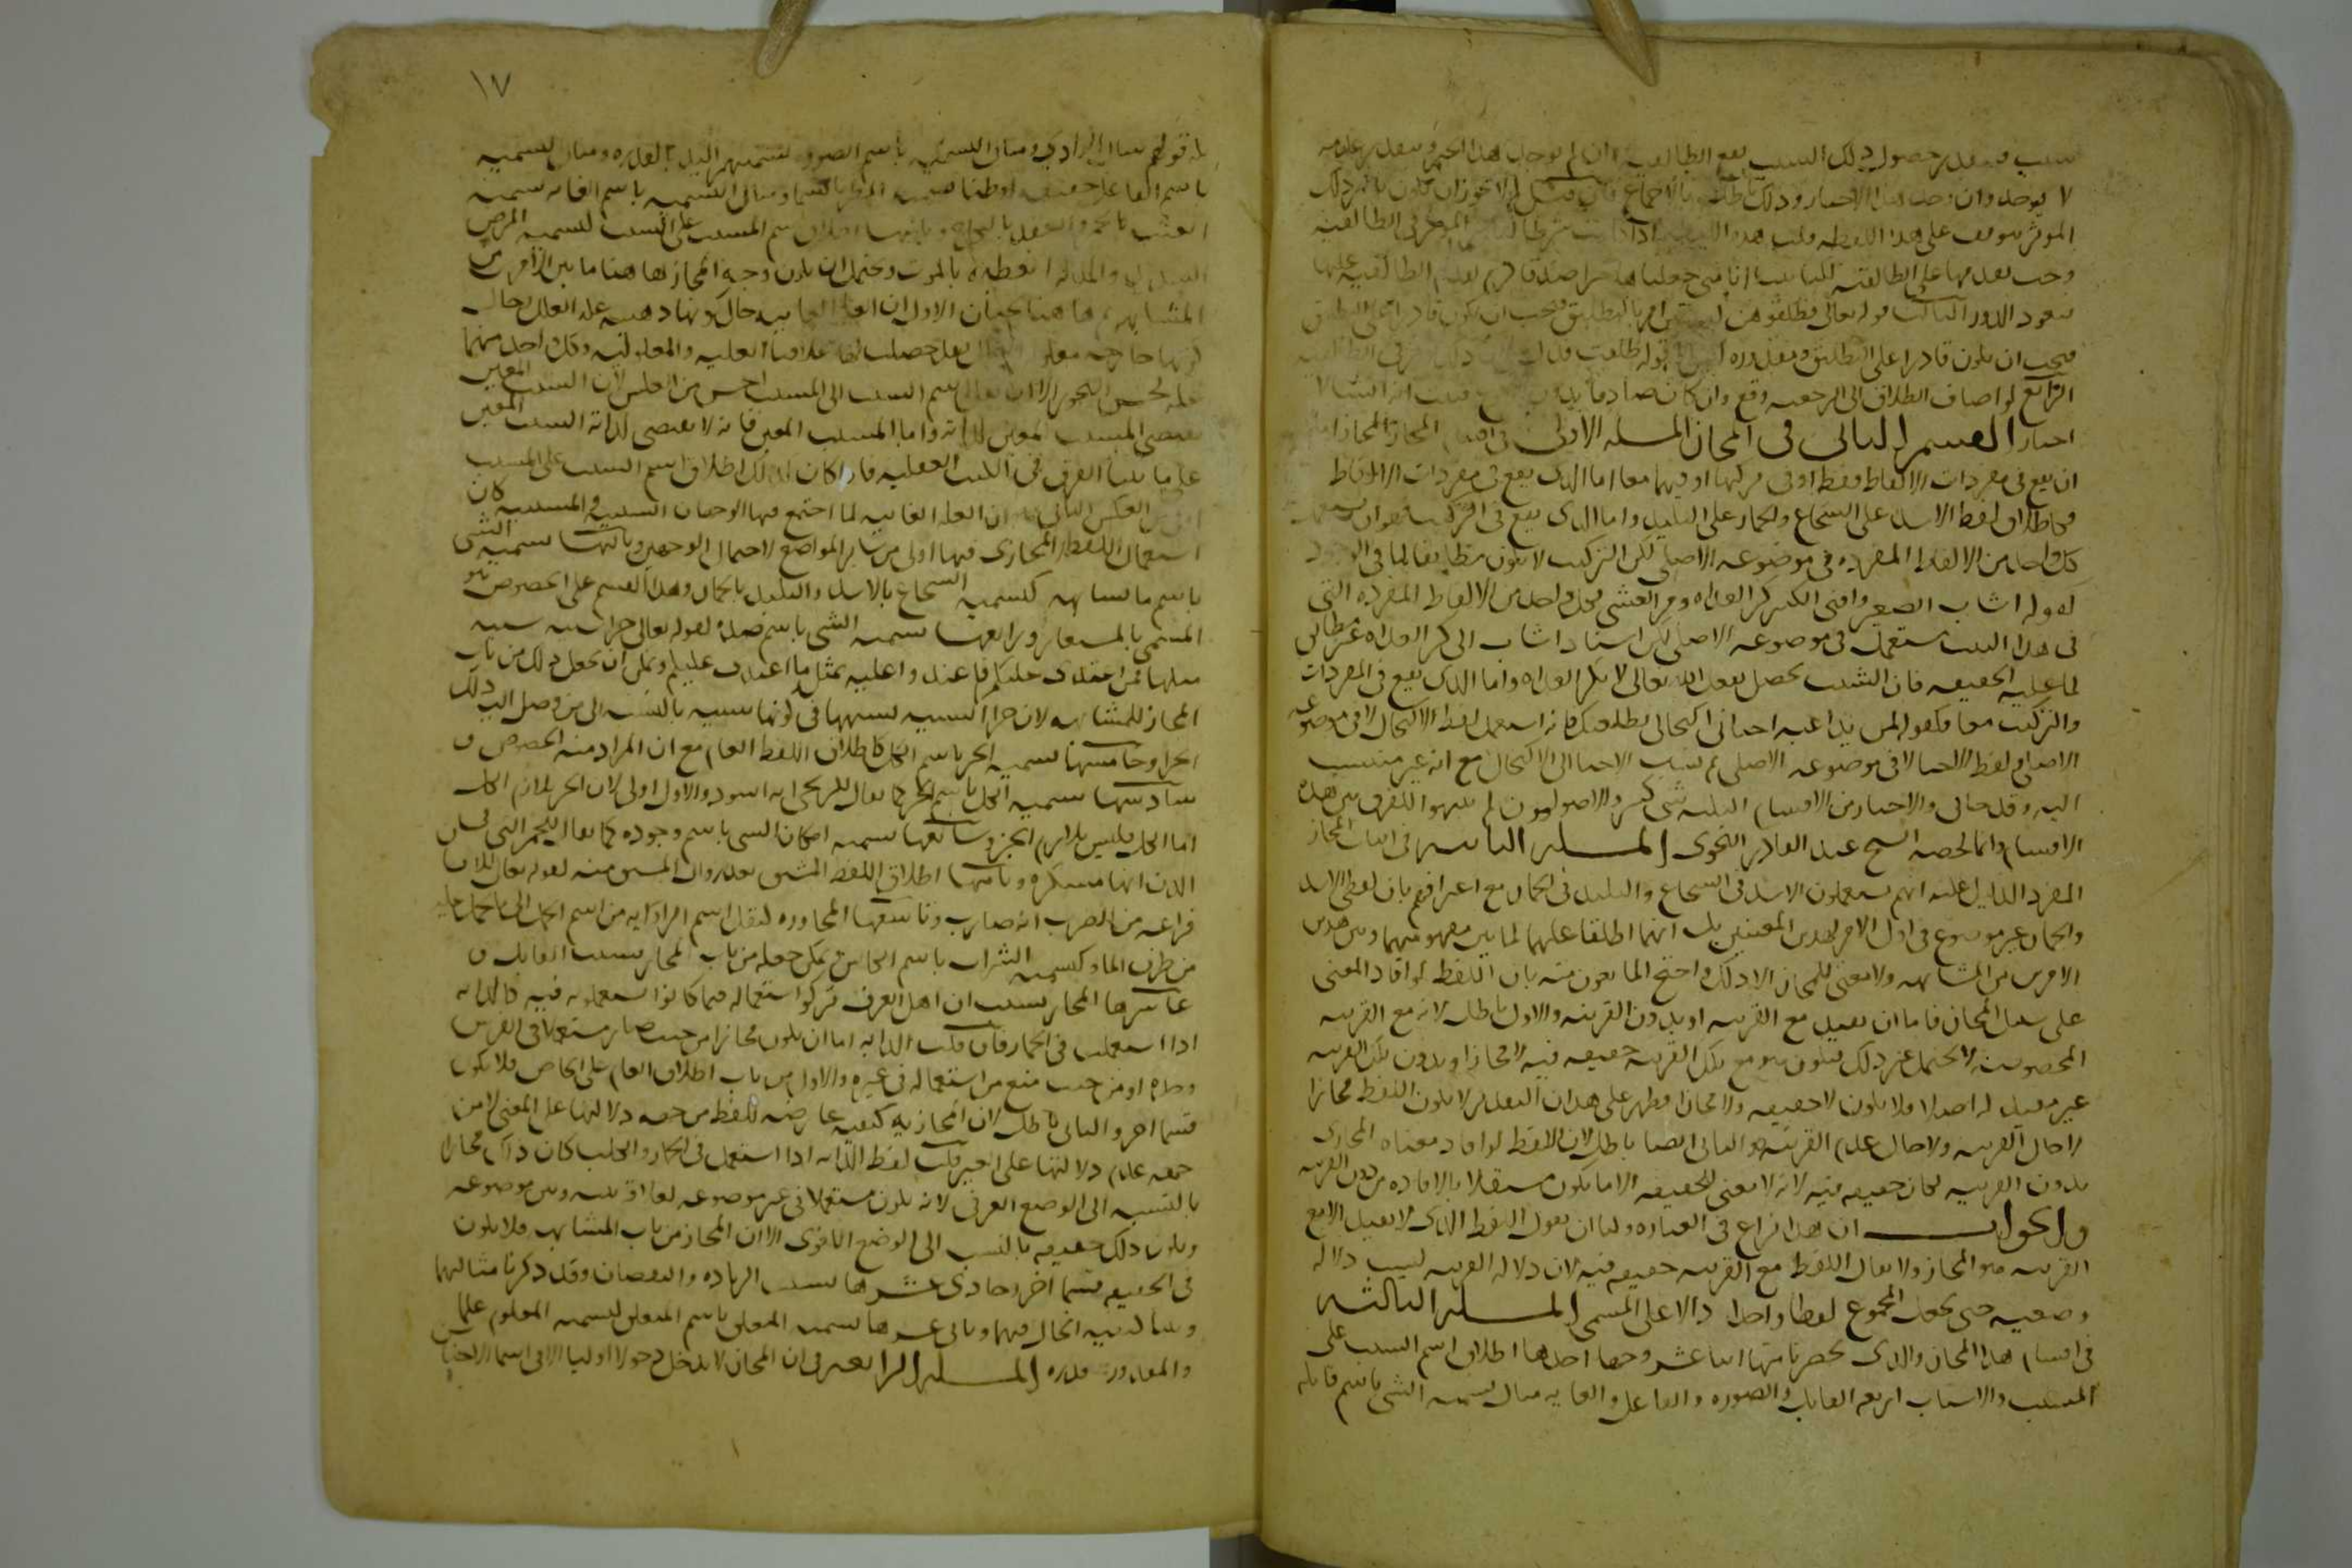 سبب فبتقدير حصول ذلك السبب يقع الطالقية وان لم يوجد هذا الخبر وبتقدير عدمه
لا يوجد وان وجد هذا الاخبار وذلك باطل بالاجماع فان قيل لم لا يجوز ان يكون تاثير ذلك
الموثر يتوقف على هذا اللفظ قلت هذه اللفظة اذا كانت شرطا لتاثير الموثر في الطالقية
وجب تقدمها على الطالقية لكنا بينا انا متى جعلناها خبرا صدقا لزم تقدم الطالقية عليها
فيعود الدور الثالث قوله تعالى فطلقوهن لعدتهن امر بالتطليق فيجب ان يكون قادرا على التطليق
فيجب ان يكون قادرا على التطليق ومقدوره ليس الا قوله طلقت فدل
الرابع لو اضاف الطلاق الى الرجعية وقع وان كان صادقا بدون
اخبار القسم الثاني في المجاز المسلة الاولى في اقسام المجاز المجاز اما
ان يقع في مفردات الالفاظ فقط او في مركبها او فيهما معا اما الذي يقع في مفردات الالفاظ
فكاطلاق لفظ الاسد على الشجاع والحمار على البليد واما الذي يقع في التركيب فهو ان يستعمل
كل واحد من الالفاظ المفردة في موضوعه الاصلي لكن التركيب لا يكون مطابقا لما في الوجود
كقوله اشاب الصغير وافنى الكبير كر الغداة ومر العشي فكل واحد من الالفاظ المفردة التي
في هذا البيت مستعمل في موضوعه الاصلي لكن اسناد اشاب الى كر الغداة غير مطابق
لما عليه الحقيقة فان الشيب يحصل بفعل الله تعالى لا بكر الغداة واما الذي يقع في المفردات
والتركيب معا فكقولك لمن يداعبه احياني اكتحالي بطلعتك فانه استعمل لفظ الاكتحال لا في موضوعه
الاصلي ولفظ الاحيا لا في موضوعه الاصلي ثم نسب الاحيا الى الاكتحال مع انه غير منتسب
اليه وقد جا في والاخبار من الاقسام الثلثة شي كثير والاصوليون لم يتنبهوا للفرق بين هذه
الاقسام وانما لخصه الشيخ عبد القاهر النحوي المسلة الثانية في اثبات المجاز
المفرد الدليل عليه انهم يستعملون الاسد في الشجاع والبليد في الحمار مع اعترافهم بان لفظ الاسد
والحمار غير موضوع في اول الامر لهذين المعنيين بل انهما اطلقا عليهما لما بين مفهوميهما وبين هذين
الامرين من المشابهة ولا معنى للمجاز الا ذلك واحتج المانعون منه بان اللفظ لو افاد المعنى
على سبيل المجاز فاما ان يفيد مع القرينة او بدون القرينة والاول باطل لانه مع القرينة
المخصوصة لا يحتمل غير ذلك فيكون هو مع تلك القرينة حقيقة فيه لا مجازا وبدون تلك القرينة
غير مفيد له اصلا فلا يكون لا حقيقة ولا مجازا فظهر على هذا ان التقدير لا يكون اللفظ مجازا
لا حال القرينة ولا حال عدم القرينة والثاني ايضا باطل لان اللفظ لو افاد معناه المجازي
بدون القرينة لكان حقيقة فيه لانه لا معنى للحقيقة الا ما يكون مستقلا بالافادة من دون القرينة
والجواب ان هذا نزاع في العبارة ولنا ان نقول اللفظ الذي لا يفيد الا مع
القرينة هو المجاز ولا يقال اللفظ مع القرينة حقيقة فيه لان دلالة القرينة ليست دلالة
وضعية حتى يجعل المجموع لفظا واحدا دالا على المسمى المسلة الثالثة
في اقسام هذا المجاز والذي يحضرنا منها اثنا عشر وجها احدها اطلاق اسم السبب على
المسبب والاسباب اربعة القابل والصورة والفاعل والغاية مثال تسمية الشي باسم قابله
١٧
له قولهم سال الوادي ومثال التسمية باسم الصورة تسميتهم اليد بالقدرة ومثال تسمية
باسم الفاعل حقيقة او ظنا تسمية المطر بالسما ومثال التسمية باسم الغاية تسمية
العنب بالخمر والعقد بالنكاح وثانيها اطلاق اسم المسبب على السبب كتسمية المرض
الشديد والمذلة العظيمة بالموت ويحتمل ان يكون وجه المجاز هاهنا ما بين الامرين من
المشابهة ثم هاهنا بحثان الاول ان العلة الغايية حال كونها ذهنية علة العلل وحال
كونها خارجية معلولة العلل فقد حصلت لها علاقتا العلية والمعلولية وكل واحد منهما
علة لحسن التجوز الا ان نقل اسم السبب الى المسبب احسن من العكس لان السبب المعين
يقتضي المسبب المعين لذاته واما المسبب المعين فانه لا يقتضي لذاته السبب المعين
على ما بينا الفرق في الكتب العقلية فاذا كان كذلك كان اطلاق اسم السبب على المسبب
اولى من العكس الثاني ان العلة الغايية لما اجتمع فيها الوجهان السببية والمسببية كان
استعمال اللفظ المجازي فيها اولى من ساير المواضع لاحتمال الوجهين وثالثها تسمية الشي
باسم ما يشابهه كتسمية الشجاع بالاسد والبليد بالحمار وهذا القسم على الخصوص هو
المسمى بالمستعار ورابعها تسمية الشي باسم ضده لقوله تعالى جزا سيئة سيئة
مثلها فمن اعتدى عليكم فاعتدوا عليه بمثل ما اعتدى عليكم ويمكن ان يجعل ذلك من باب
المجاز للمشابهة لان جزا السيئة يشبهها في كونها سيئة بالنسبة الى من وصل اليه ذلك
الجزا وخامسها تسمية الجز باسم الكل كاطلاق اللفظ العام مع ان المراد منه الخصوص و
سادسها تسمية الكل باسم الجز كما يقال للزنجي انه اسود والاول اولى لان الجز يلازم الكل
اما الكل فليس بلازم الجز وسابعها تسمية امكان الشي باسم وجوده كما يقال للخمر التي في
الدن انها مسكرة وثامنها اطلاق اللفظ المشتق بعد زوال المشتق منه لقولنا للانسان
فراغه من الضرب انه ضارب وتاسعها المجاورة كنقل اسم الراوية من اسم الجمل الى ما يحمل عليه
من ظرف الما وكتسمية الشراب باسم الكاس ويمكن جعله من باب المجاز بسبب القابل و
عاشرها المجاز بسبب ان اهل العرف تركوا استعماله فيما كانوا يستعملونه فيه كالدابة
اذا استعملت في الحمار فان قلت الدابة اما ان يكون مجازا من حيث صار مستعملا في الفرس
وحده او من حيث منع من استعماله في غيره والاول من باب اطلاق العام على الخاص فلا يكون
قسما اخر والثاني باطل لان المجازية كيفية عارضة للفظ من جهة دلالتها على المعنى لا من
جهة عدم دلالتها على الغير قلت لفظ الدابة اذا استعمل في الحمار والكلب كان ذلك مجازا
بالنسبة الى الوضع العرفي لانه يكون مستعملا في غير موضوعه لعلاقة بينه وبين موضوعه
ويكون ذلك حقيقة بالنسبة الى الوضع اللغوي الا ان المجاز من باب المشابهة فلا يكون
في الحقيقة قسما اخر وحادي عشرها بسبب الزيادة والنقصان وقد ذكرنا مثالهما
وبينا كيفية الحال فيهما وثاني عشرها تسمية المتعلق باسم المتعلق كتسمية المعلوم علما
والمقدور قدرة المسلة الرابعة في ان المجاز لا يدخل دخولا اوليا الا في اسما الاجناس